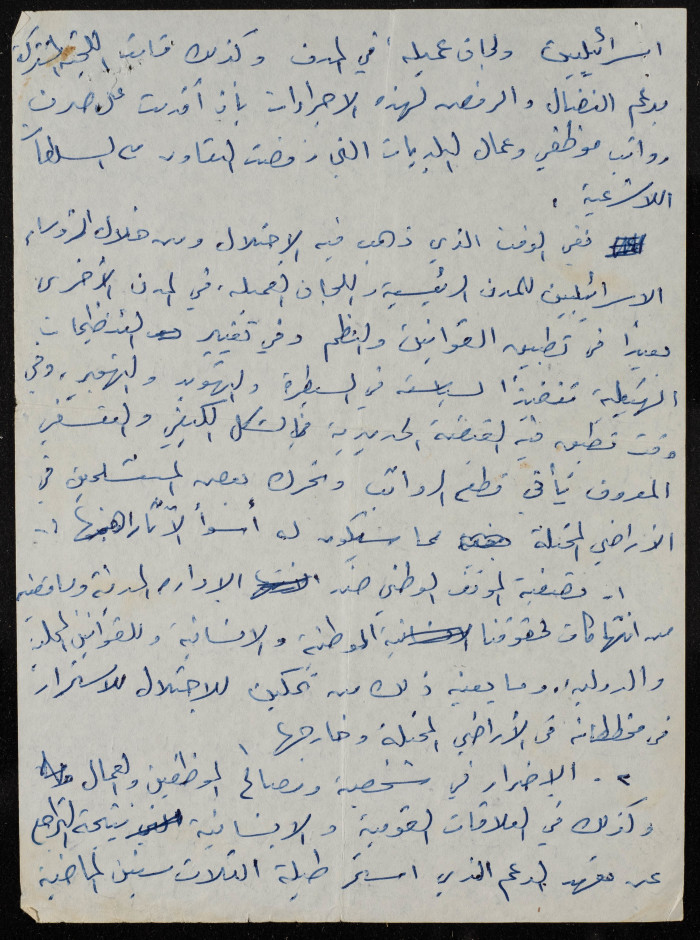 اسرائيليين ولجان عميله في المدن وكذلك قامت اللجنة المشتركة
بدعم النضال والرفض لهذه الاجراءات بأن أقدمت على صرف
رواتب موظفي وعمال البلديات التي رفضت التعاون مع السلطات
اللاشرعية .
ففي الوقت الذي ذهب فيه الإحتلال ومن خلال الرؤساء
الاسرائيليين للمدن الرئيسية واللجان العميله في المدن الأخرى
بعيداً في تطبيق القوانين والنظم وفي تغيير التنظيمات
الهيكلية تنفيذاً لسياسته في السيطرة والتهويد والتهجير، وفي
وقت تطبق فيه القبضة الحديدية بالشكل الكيفي والتعسفي
المعروف يأتي قطع الرواتب وتحرك بعض في
الأراضي المحتلة مما سيكون له أسوأ الآثار أهمها :-
١- تصفية الموقف الوطني ضد الإداره المدنية وماتعنيه
من انتهاكات لحقوقنا الوطنية والانسانية وللقوانين المحلية
والدوليه، وما يعنيه ذلك من تمكين للاحتلال للاستمرار
في مخططاته في الأراضي المحتلة وخارجها
٢- الإضرار في شخصية ومصالح الموظفين والعمال
وكذلك في العلاقات القومية والانسانية نتيجة التراجع
عن تعهد الدعم الذي استمر طيلة الثلاث سنين الماضية